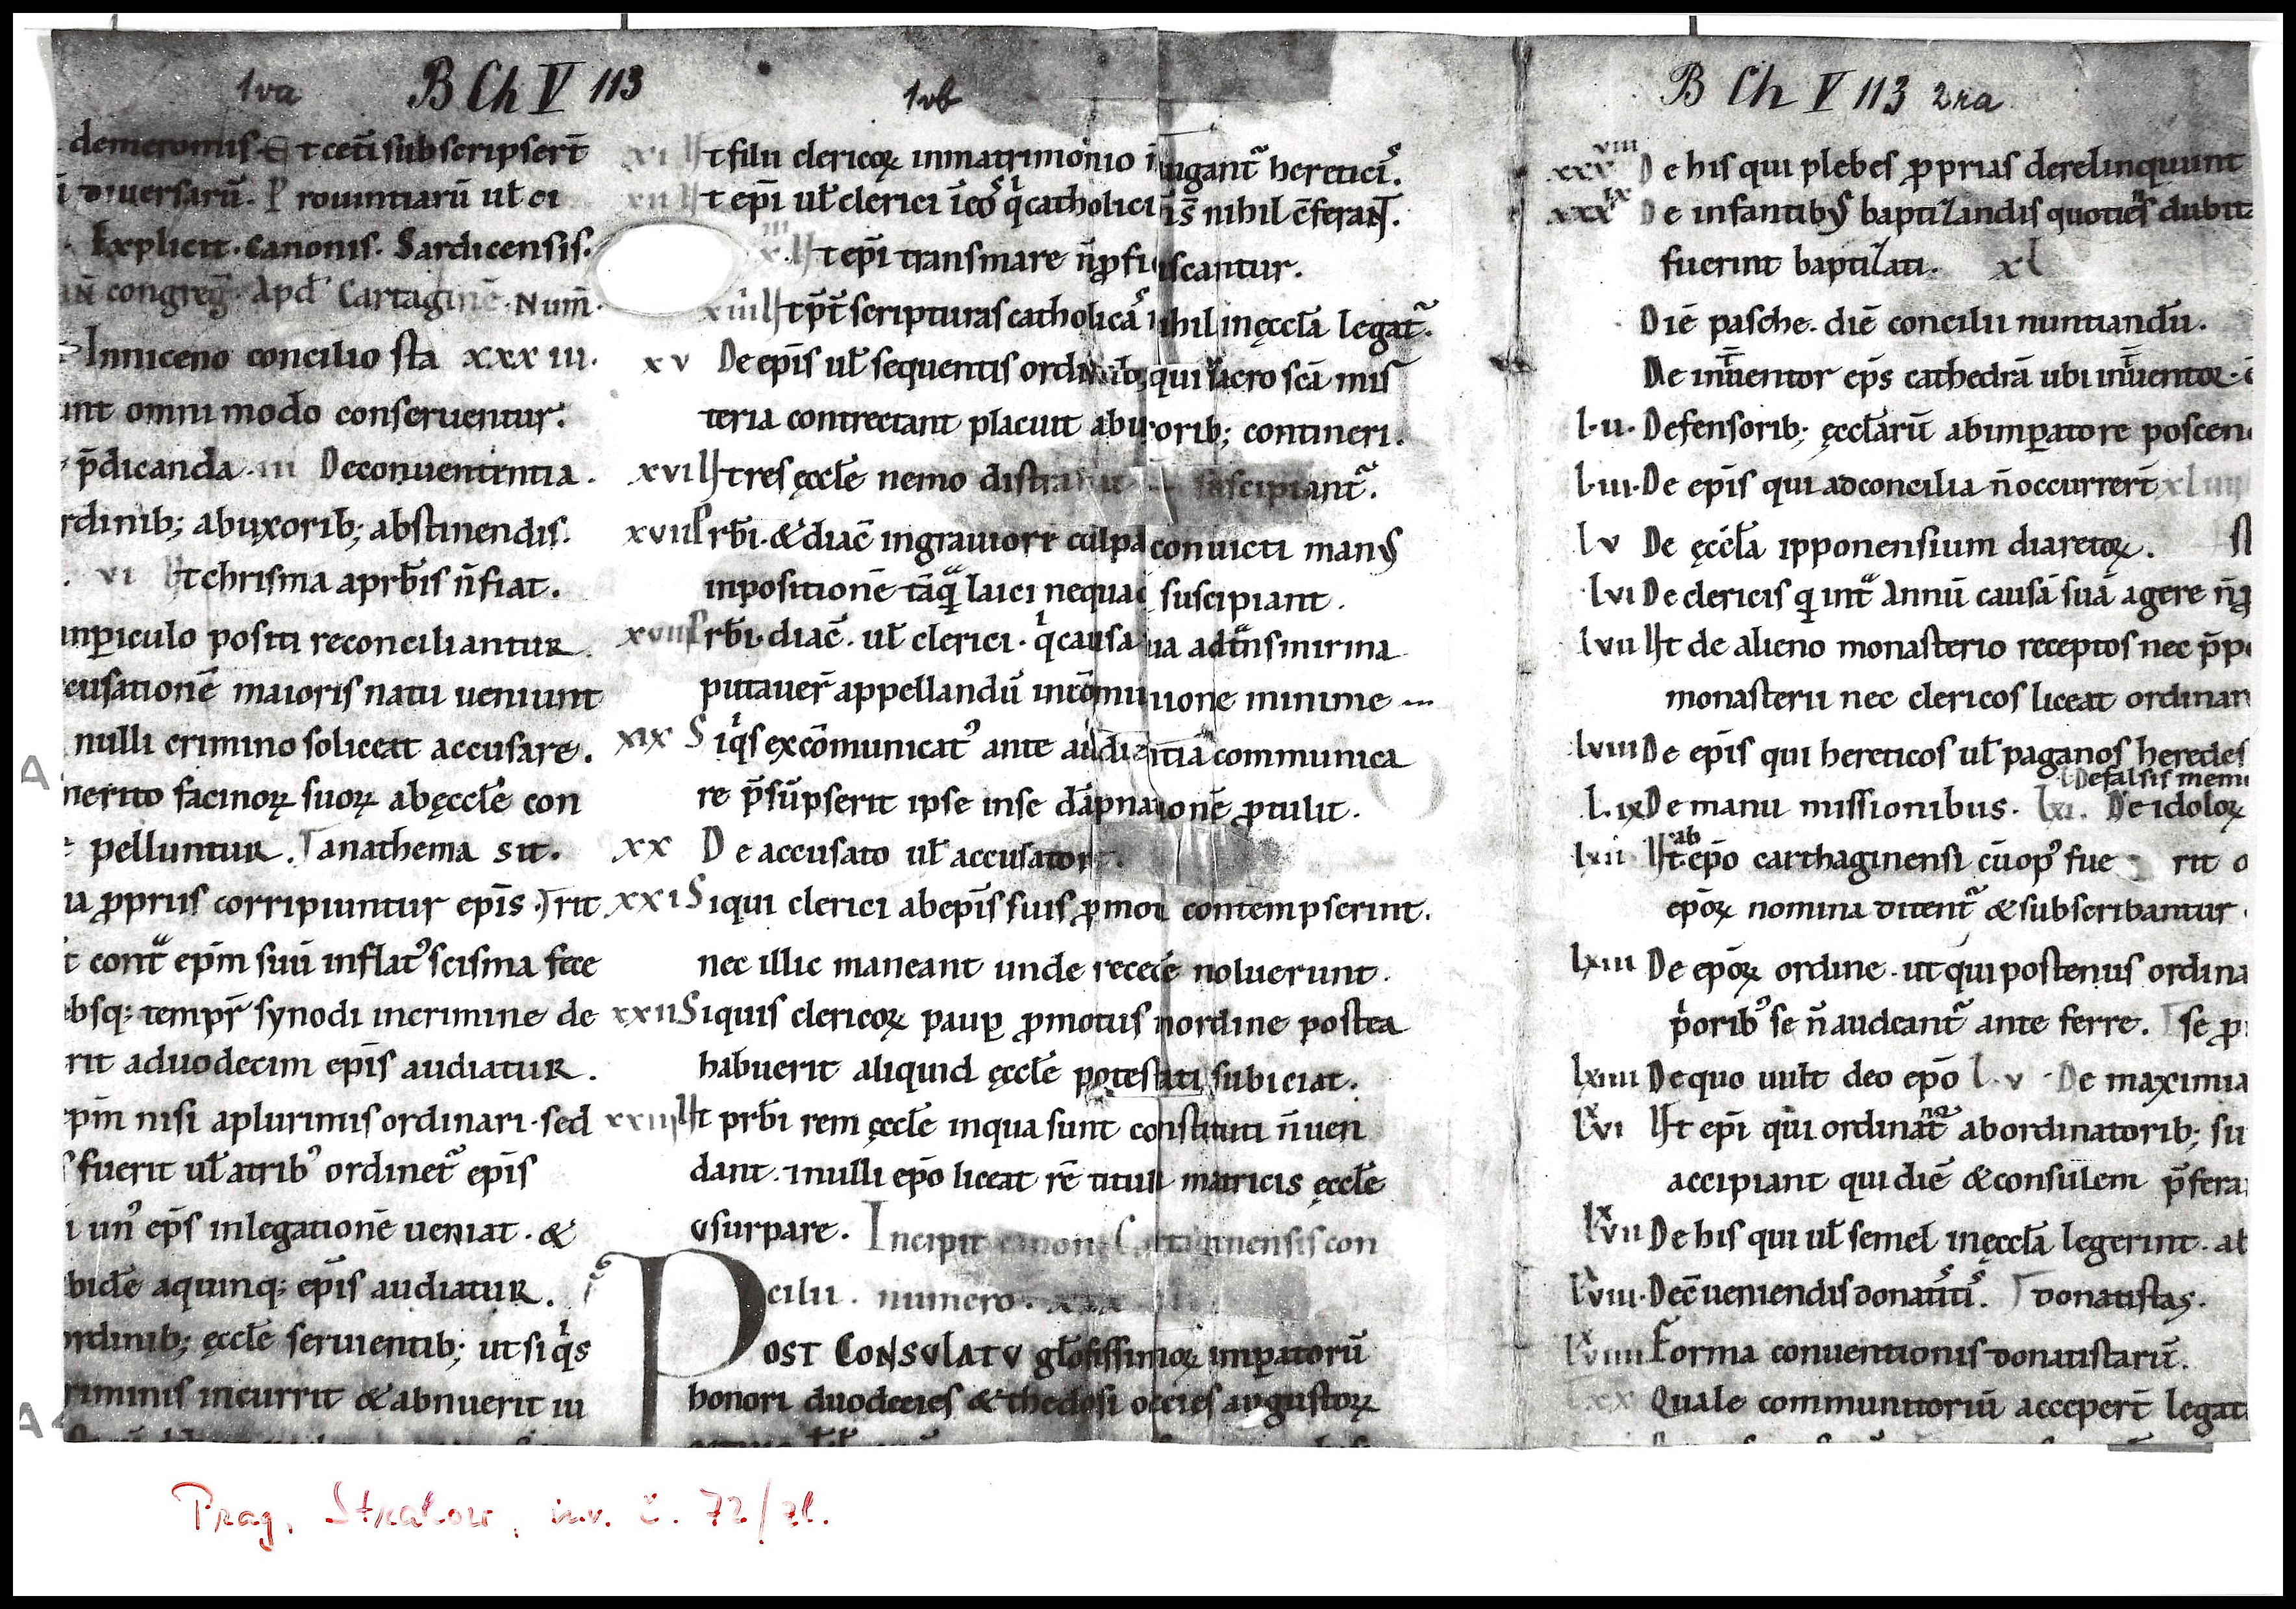 1va B Ch V 113
demeromus. Et cet̄i subscripser̄t
diuersarū. Prouintiarū ul̄ ci
Explicit. Canonis. Sardicensis.
congreḡ. Apd̄ Cartaginē. Num̄.
Inniceno concilio sta xxxiii.
int omni modo conseruentur.
p̄dicanda. iii Deconuenientia.
rdinib; abuxorib; abstinendis.
vi Ut chrisma aprb̄is n̄ fiat.
inꝑiculo positi reconciliantur.
cusationē maioris natu ueniunt
nulli criminoso liceat accusare.
merito facinoꝝ suoꝝ abęccłe con
pelluntur. anathema sit.
a ꝓpriis corripiuntur epīs. rit
cont̄ ep̄m suū inflat᾽ scisma fece
ebsq; tempr̄ synodi incrimine de
rit aduodecim ep̄is audiatur.
ep̄m nisi aplurimis ordinari. sed
fuerit ul̄ atrib᾽ ordinet᷑ ep̄is
un᾽ ep̄s inlegationē ueniat. &
bide aquinq; ep̄is audiatur.
ordinib; ęccłe seruientib; ut siq̇s
riminis incurrit & abnuerit iu
1vb
xi Ut filii clericoꝝ inmatrimonio iungant᷑ hereticis.
xii Ut ep̄i ul̄ clerici catholici n̄ s̄ nihil c̄ferant.
xiii Ut ep̄i transmare n̄ ꝓficiscantur.
xiiii Ut p̄t̄ scripturas catholicas nihil inęccła legat᷑.
xv De ep̄is ul̄ sequentis ordinib; qui sacro scā mis
teria contrectant placuit abuxorib; contineri.
xvi Ut res ęccłe nemo suscipiant᷑.
xvii Prb̄i. & diac̄ ingrauiori culpa conuicti man᾽
inpositionē tāq̄ laici nequaq̄ suscipiant.
xviii Prb̄i. diac̄. ul̄ clerici. q̇ causa sua adt̄nsmirina
putauer̄ appellandū incōmunione minime
xix Siq̇s excōmunicat᾽ ante audientiā communica
re p̄sūpserit ipse inse dāpnationē ꝓtulit.
xx De accusato ul̄ accusatore.
xxi Siqui clerici abep̄is suis ꝓmoti contempserint.
nec illic maneant unde recedē noluerunt.
xxii Siquis clericoꝝ pauꝑ ꝓmotus inordine postea
habuerit aliquid ęccłe potestati subiciat.
xxiii Ut prb̄i rem ęccłe inqua sunt constituti n̄ uen
dant. nulli ep̄o liceat rē tituli matricis ęccłe
usurpare. Incipit canon Cartaginensis con
cilii. numero.
Post Consulatu głosissimoꝝ imꝑatorū
honori duodecies & thedosi octies augustoꝝ
B Ch V 113 2ra
xxxviii De his qui plebes ꝓprias derelinquunt
xxxix De infantib᾽ baptizandis quotiens dubita
fuerint baptizati. xl
Diē pasche. diē concilii nuntiandū.
De inuentor ep̄s cathedrā ubi inuentor.
l.ii. Defensorib; ęccłarū abimꝑatore poscen
l.iii. De ep̄is qui adconcilia n̄ occurrer̄t xliiii
lv De ęccła ipponensium diaretoꝝ.
lvi De clericis q̄ int̄ annū causā suā agere n̄
lvii Ut de alieno monasterio receptos nec p̄p
monasterii nec clericos liceat ordinar
lviii De ep̄is qui hereticos ul̄ paganos heredes
Defalsis mem
l.ix De manu missionibus. lxi. De idoloꝝ
lxii Ut ab ep̄o carthaginensi cū op᾽ fue rit o
ep̄oꝝ nomina ditent᷑ & subscribantur
lxiii De ep̄oꝝ ordine. ut qui postenus ordina
p̄orib᾽ se n̄ audeant᷑ ante ferre. se ꝓ
lxiiii De quo uult deo ep̄o l.v De maximia
lxvi Ut ep̄i qui ordinant᷑ abordinatorib; su
accipiant qui diē & consulem p̄fera
lxvii De his qui ul̄ semel inęccła legerint. al
lxviii. Dec̄ueniendis donatistis. donatistas.
lxviiii Forma conuentionis donatistarū.
lxx Quale communitoriū acceper̄t legat
Prag, Strahov, inv. č. 72/zl.